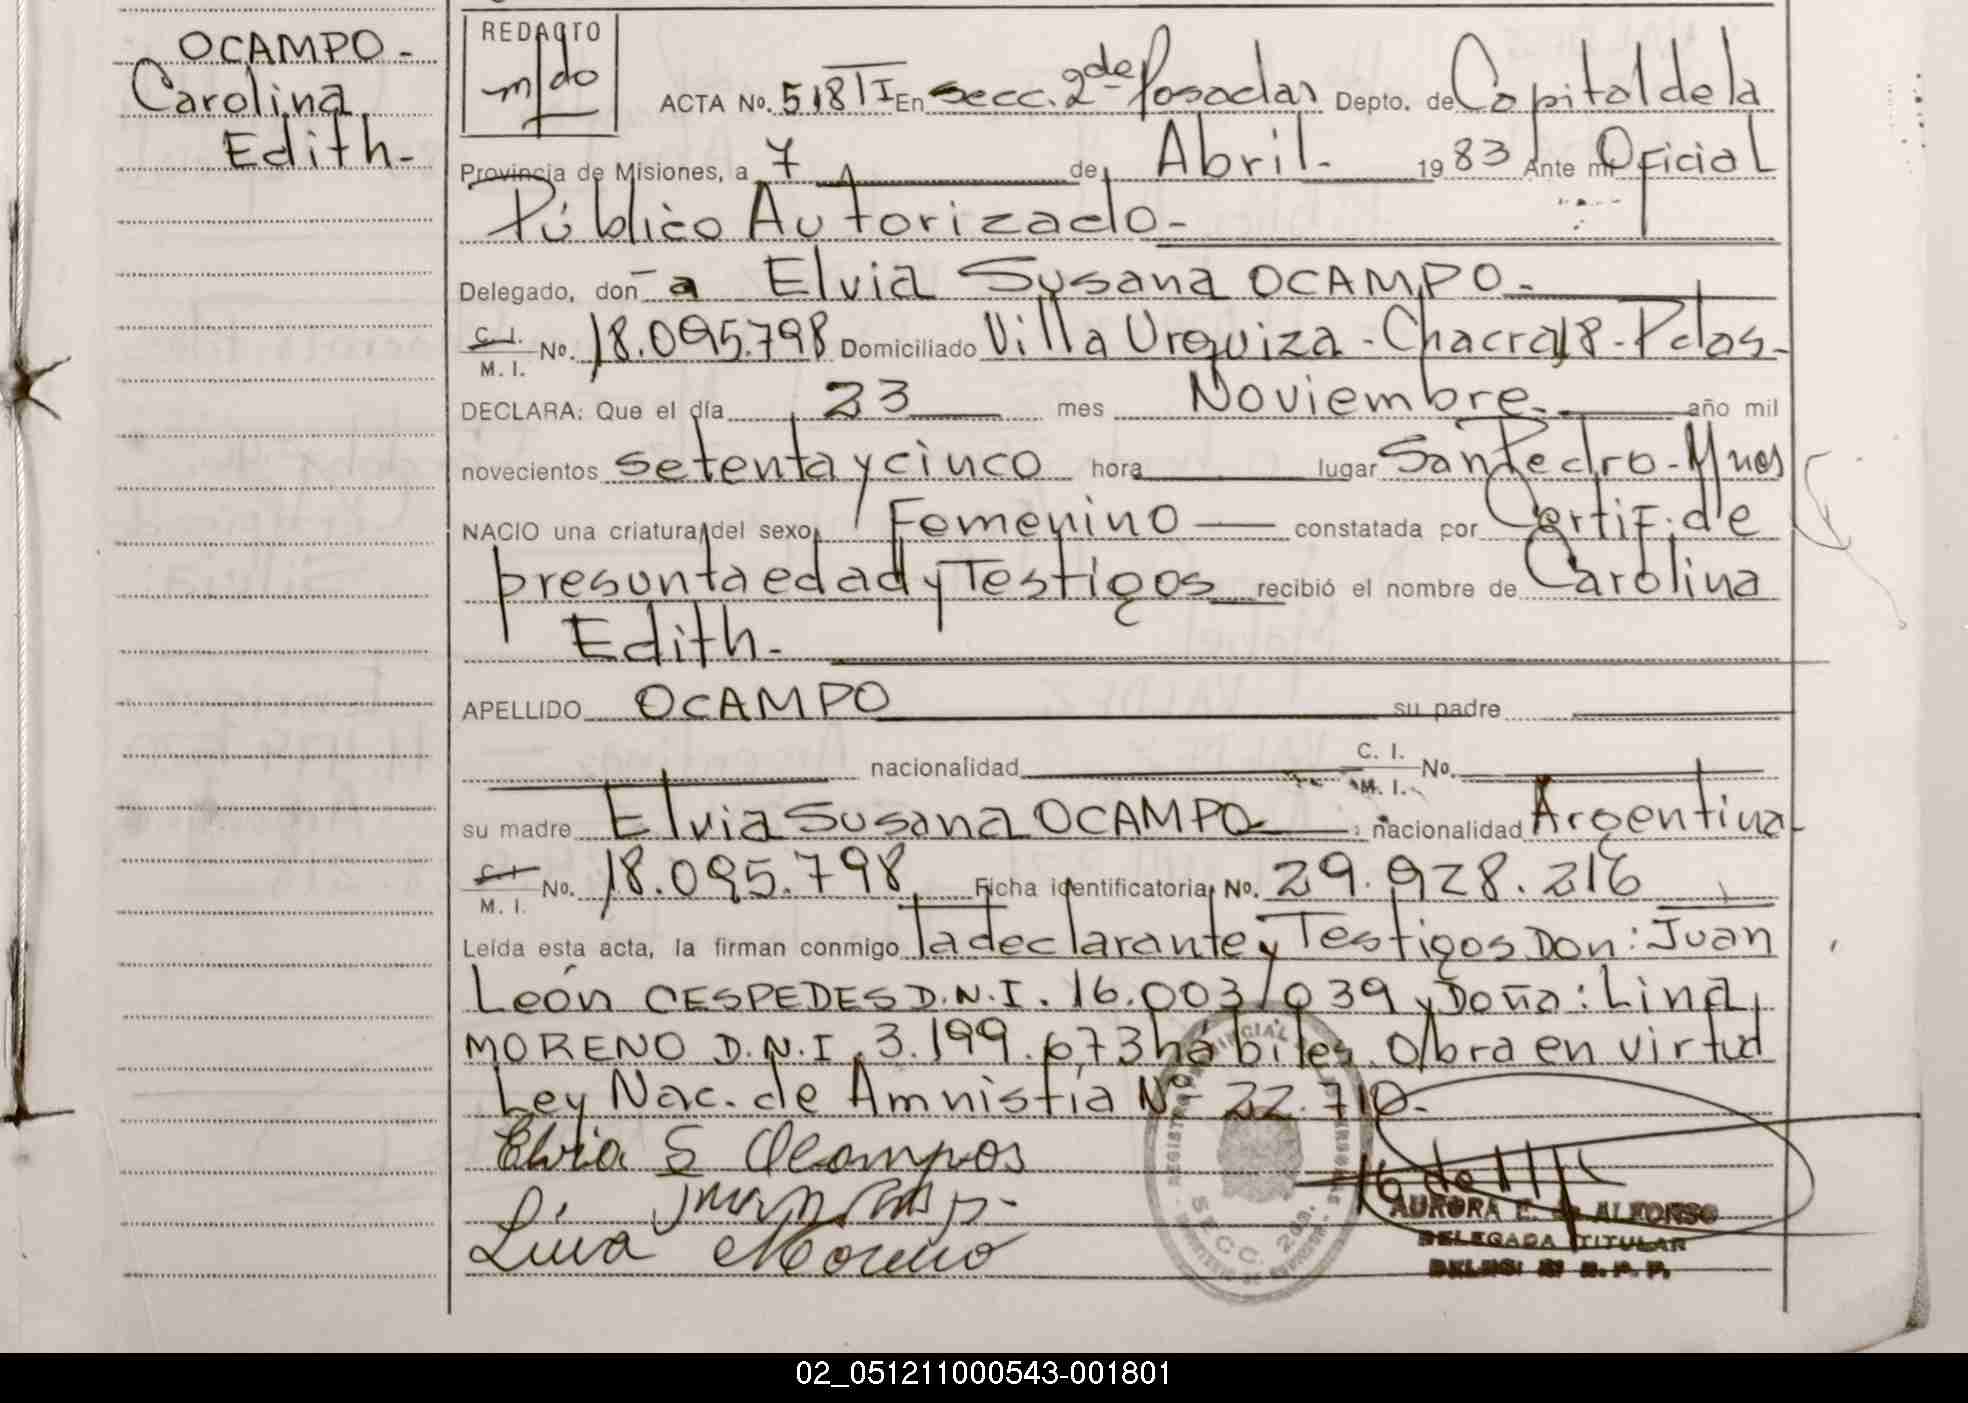 OCAMPO-
Carolina
Edith-
REDACTO
m/do
ACTA No. 518 TI En secc. 2de Posadas Depto. de Capital de la
Provincia de Misiones, a 7 de Abril- 1983 Ante mi Oficial
Público Autorizado-
Delegado, don a Elvia Susana OCAMPO-
C. I.
M. I. No. 18.095.798 Domiciliado Villa Urquiza - Chacra 18 - Pdas-
DECLARA: Que el día 23 mes Noviembre- año mil
novecientos setenta y cinco hora lugar San Pedro - Mnes
NACIO una criatura del sexo Femenino constatada por Certif. de
presunta edad y Testigos recibió el nombre de Carolina
Edith-
APELLIDO OCAMPO su padre
nacionalidad C. I.
M. I. No.
su madre Elvia Susana OCAMPO nacionalidad Argentina
C. I.
M. I. No. 18.095.798 Ficha identificatoria No. 29.928.216
Leída esta acta, la firman conmigo la declarante y Testigos Don: Juan
León CESPEDES D.N.I. 16.003.039 y Doña: Lina
MORENO D.N.I. 3.199.673 hábiles. Obra en virtud
Ley Nac. de Amnistía Nº 22.710.-
Elvia S Ocampos
Juan
Lina Moreno
SECC. 2da.
AURORA E. de ALFONSO
DELEGADA TITULAR
02_051211000543-001801